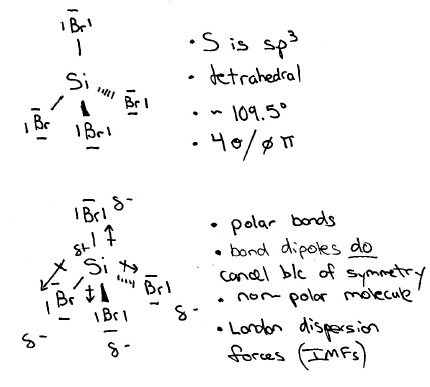 |Br|
Si
|Br
Br|
|Br|
• S is sp³
• tetrahedral
• ~ 109.5°
• 4 σ / ø π
|Br| δ-
δ+
Si
|Br
Br|
|Br|
δ-
δ-
δ-
• polar bonds
• bond dipoles do
cancel b/c of symmetry
• non-polar molecule
• London dispersion
forces (IMFs)